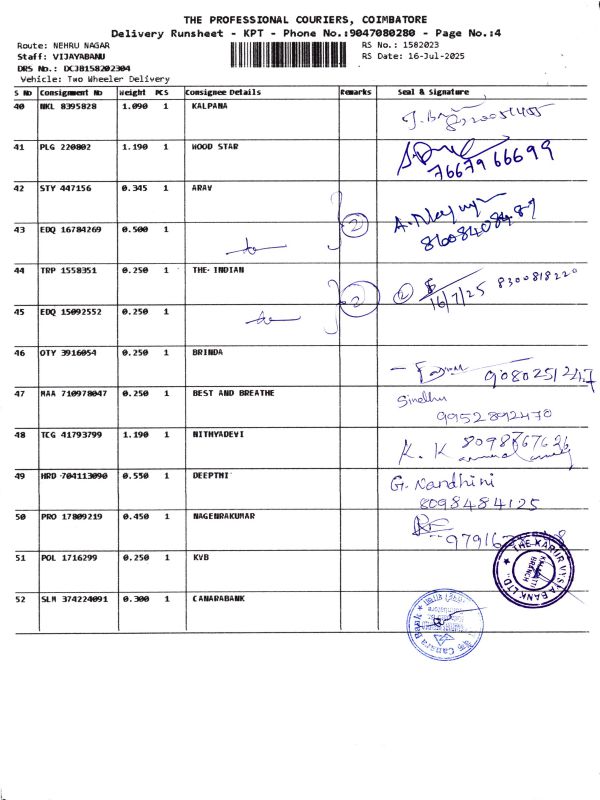 THE PROFESSIONAL COURIERS, COIMBATORE
Delivery Runsheet - KPT - Phone No.:9047080280 - Page No.:4
Route: NEHRU NAGAR RS No.: 1582023
Staff: VIJAYABANU RS Date: 16-Jul-2025
DRS No.: DCJB158202304
Vehicle: Two Wheeler Delivery
S No Consignment No Weight PCS Consignee Details Remarks Seal & Signature
40 NKL 8395828 1.090 1 KALPANA
41 PLG 220802 1.190 1 WOOD STAR
7667966699
42 STY 447156 0.345 1 ARAV
43 EDQ 16784269 0.500 1 2
8608408489
44 TRP 1558351 0.250 1 THE INDIAN
2 2 16/7/25 8300818220
45 EDQ 15092552 0.250 1
46 OTY 3916054 0.250 1 BRINDA
9080251247
47 MAA 710978047 0.250 1 BEST AND BREATHE Sindhu
9952892470
48 TCG 41793799 1.190 1 NITHYADEVI K. K
49 HRD 704113090 0.550 1 DEEPTHI G. Nandhini
8098484125
50 PRO 17809219 0.450 1 NAGENRAKUMAR
51 POL 1716299 0.250 1 KVB THE KARUR VYSYA BANK LTD.
BRANCH
52 SLM 374224091 0.300 1 CANARABANK
Canara Bank